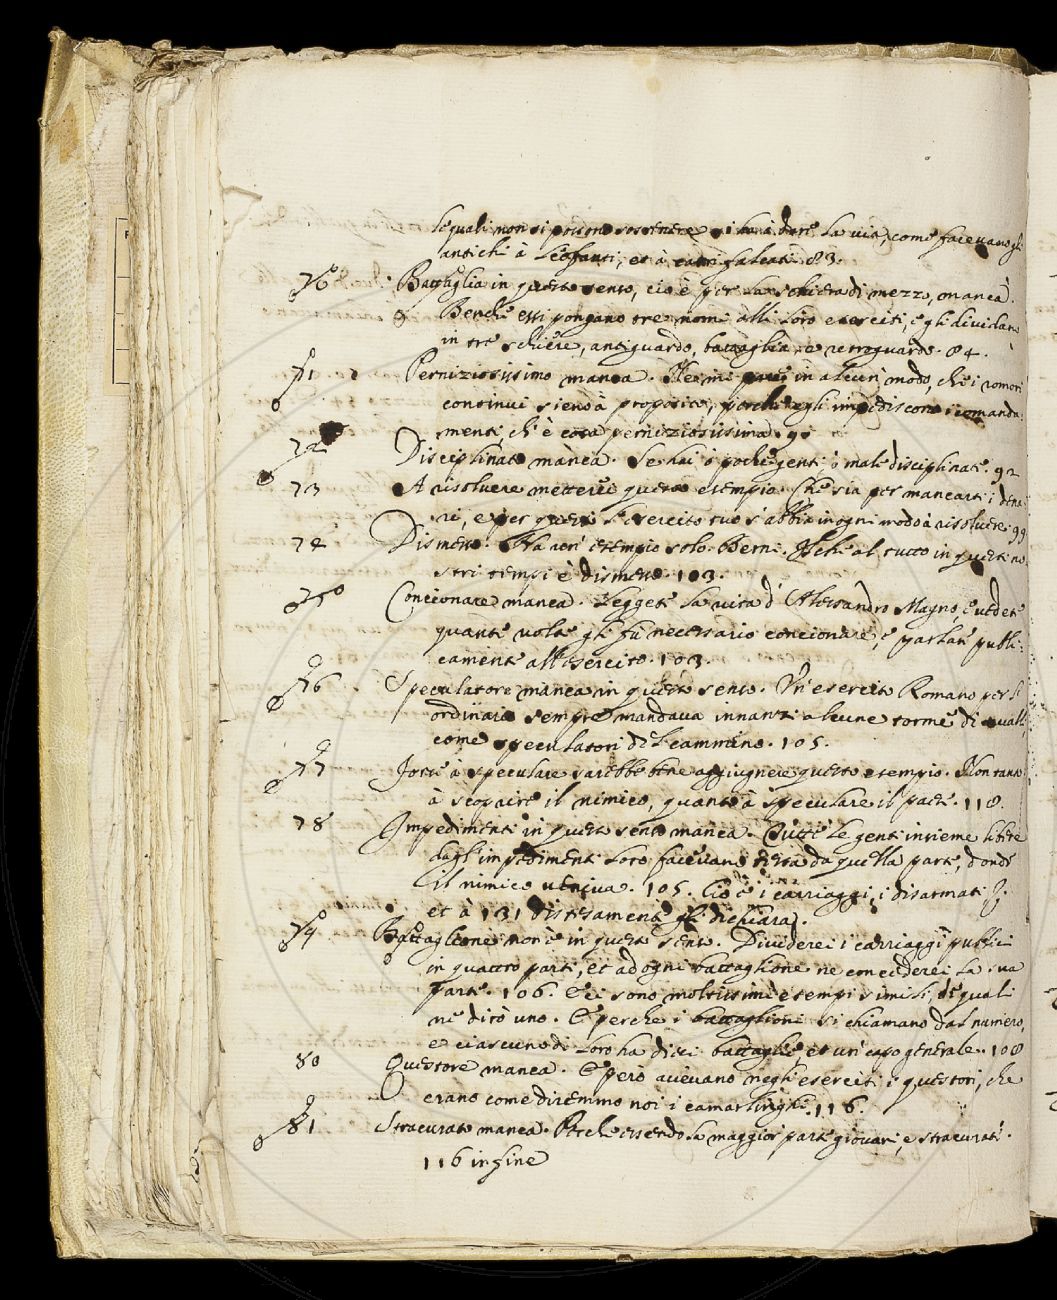 le quali non si posson sostenere si ha à dare la via, come facevano gli
antichi à Leofanti, et à carri falcati. 83.
70 Battaglia in questo senso, cio è per la schiera di mezzo, manca.
Benche essi pongano tre nomi alli loro eserciti, e gli dividano
in tre schiere, antiguardo, battaglia, e retroguardo. 84.
71 Perniziosissimo manca. Ne mi pare in alcun modo, che i romori
continui sieno à proposito, perche egli impediscono i comanda
menti, ch'è cosa perniziosissima. 9
72 Disciplinato manca. Se hai ò poche genti, ò male disciplinate. 92
73 A risolvere metterei questo esempio. Che sia per mancarti i dena
ri, e per questo l'esercito tuo s'abbia in ogni modo à risolvere. 99
74 Dismesso. Ha un esempio solo. Berni. Il che al tutto in questi no
stri tempi è dismesso. 103.
75 Concionare manca. Leggete la vita d'Alessandro Magno, e vedete
quante volte gli fu necessario concionare, e parlare publi
camente all'esercito. 103.
76 Speculatore manca in questo senso. Un esercito Romano per l'
ordinario sempre mandava innanzi alcune torme di cavalli
come speculatori del cammino. 105.
77 Forse à speculare sarebbe bene aggiugnere questo esempio. Non tanto
à scoprire il nimico, quanto à speculare il paese. 110.
78 Impedimenti in questo senso manca. Tutte le genti insieme libere
dagl'impedimenti loro facevano testa da quella parte, donde
il nimico veniva. 105. Cio è i carriaggi, i disarmati &.
et à 131 distesamente gli dichiara.
79 Battaglione non è in questo senso. Dividerei i carriaggi publici
in quattro parti, et ad ogni battaglione ne concederei la sua
parte. 106. E ci sono moltissimi esempi simili, de quali
ne dirò uno. E perche i battaglioni si chiamano dal numero,
e ciascuno di loro ha dieci battaglie, et un capo generale. 108
80 Questore manca. E però avevano negli eserciti i questori, che
erano come diremmo noi i camarlinghi. 116.
81 Stracurato manca. Perche essendo la maggior parte giovani, e stracurati.
116 in fine